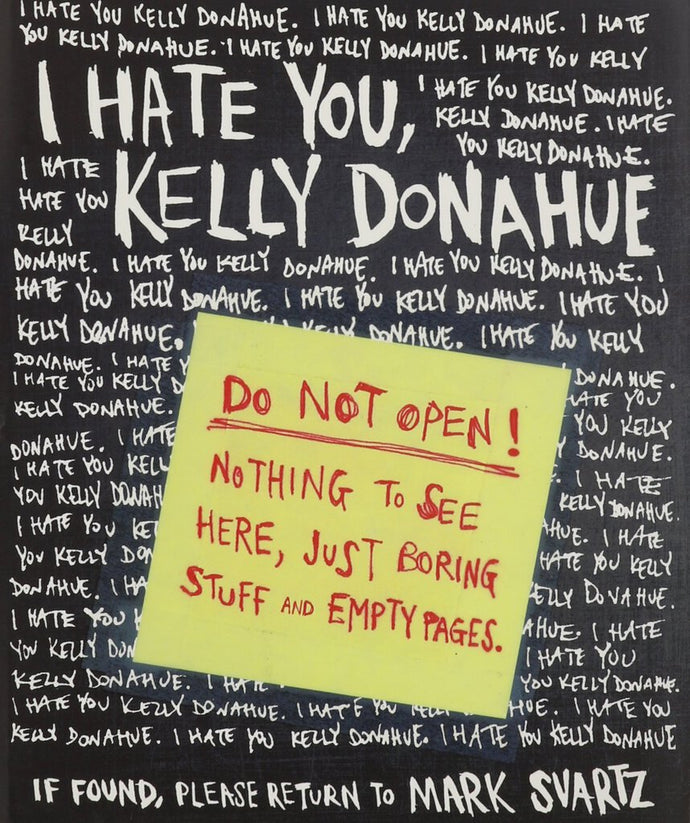 I HATE YOU KELLY DONAHUE. I HATE YOU KELLY DONAHUE. I HATE
YOU KELLY DONAHUE. I HATE YOU KELLY DONAHUE. I HATE YOU KELLY
I HATE YOU,
I HATE YOU KELLY DONAHUE.
KELLY DONAHUE. I HATE
YOU KELLY DONAHUE.
I HATE
HATE YOU
KELLY
KELLY DONAHUE
DONAHUE. I HATE YOU KELLY DONAHUE. I HATE YOU KELLY DONAHUE. I
HATE YOU KELLY DONAHUE. I HATE YOU KELLY DONAHUE. I HATE YOU
KELLY DONAHUE. KELLY DONAHUE. I HATE YOU KELLY
DONAHUE. I HATE DONAHUE.
I HATE YOU KELLY YOU
KELLY DONAHUE. YOU KELLY
DONAHUE. I HATE DONAHUE.
I HATE YOU I HATE
YOU KELLY KELLY DONAHUE.
I HATE YOU I HATE
YOU KELLY HATE YOU KELLY
DONAHUE. DOVAHUE.
I HATE YOU I HATE
YOU KELLY I HATE YOU
KELLY DONAHUE. I HATE YOU KELLY DONAHUE.
I HATE YOU KELLY DONAHUE. I HATE YOU I HATE YOU
KELLY DONAHUE. I HATE YOU KELLY DONAHUE. I HATE YOU KELLY DONAHUE
DO NOT OPEN!
NOTHING TO SEE
HERE, JUST BORING
STUFF AND EMPTY PAGES.
IF FOUND, PLEASE RETURN TO MARK SVARTZ